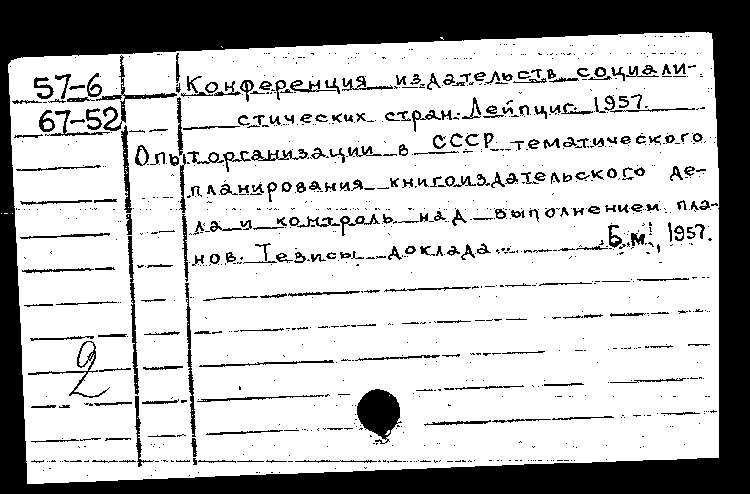 57-6 Конференция издательств социали-
67-52 стических стран. Лейпциг. 1957.
Опыт организации в СССР тематического
планирования книгоиздательского де-
ла и контроль над выполнением пла-
нов. Тезисы доклада... Б.м., 1957.
2